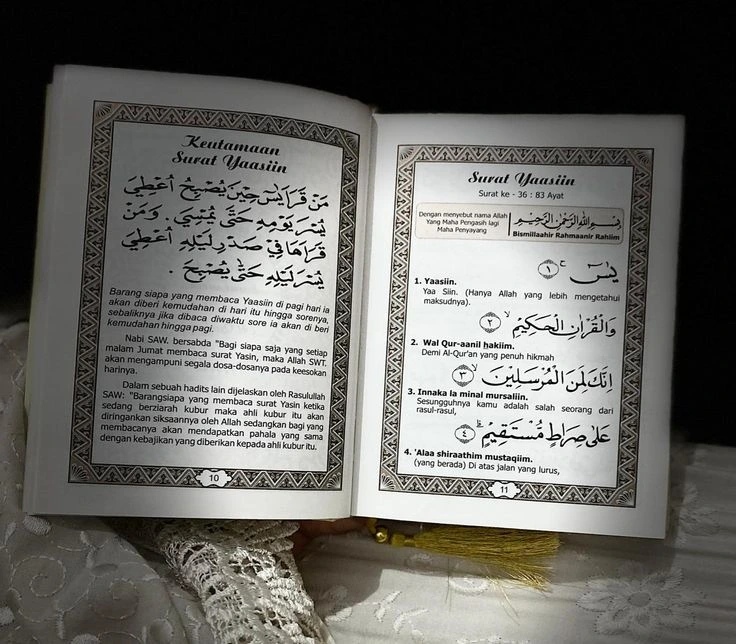 Keutamaan
Surat Yaasiin
مَنْ قَرَأَ يٰسٓ حِيْنَ يُصْبِحُ اُعْطِيَ
يُسْرَ يَوْمِهِ حَتَّى يُمْسِيَ . وَمَنْ
قَرَاَهَا فِيْ صَدْرِ لَيْلِهِ اُعْطِيَ
يُسْرَ لَيْلِهِ حَتَّى يُصْبِحَ .
Barang siapa yang membaca Yaasiin di pagi hari ia
akan diberi kemudahan di hari itu hingga sorenya,
sebaliknya jika dibaca diwaktu sore ia akan di beri
kemudahan hingga pagi.
Nabi SAW. bersabda "Bagi siapa saja yang setiap
malam Jumat membaca surat Yasin, maka Allah SWT.
akan mengampuni segala dosa-dosanya pada keesokan
harinya.
Dalam sebuah hadits lain dijelaskan oleh Rasulullah
SAW: "Barangsiapa yang membaca surat Yasin ketika
sedang berziarah kubur maka ahli kubur itu akan
diringankan siksaannya oleh Allah sedangkan bagi yang
membacanya akan mendapatkan pahala yang sama
dengan kebajikan yang diberikan kepada ahli kubur itu.
10
Surat Yaasiin
Surat ke - 36 : 83 Ayat
Dengan menyebut nama Allah
Yang Maha Pengasih lagi
Maha Penyayang
بِسْمِ اللهِ الرَّحْمٰنِ الرَّحِيْمِ
Bismillaahir Rahmaanir Rahiim
يٰسٓ ۚ ١
1. Yaasiin.
Yaa Siin. (Hanya Allah yang lebih mengetahui
maksudnya).
وَالْقُرْاٰنِ الْحَكِيْمِ ۙ ٢
2. Wal Qur-aanil hakiim.
Demi Al-Qur'an yang penuh hikmah
اِنَّكَ لَمِنَ الْمُرْسَلِيْنَ ۙ ٣
3. Innaka la minal mursaliin.
Sesungguhnya kamu adalah salah seorang dari
rasul-rasul,
عَلٰى صِرَاطٍ مُّسْتَقِيْمٍ ۗ ٤
4. 'Alaa shiraathim mustaqiim.
(yang berada) Di atas jalan yang lurus,
11